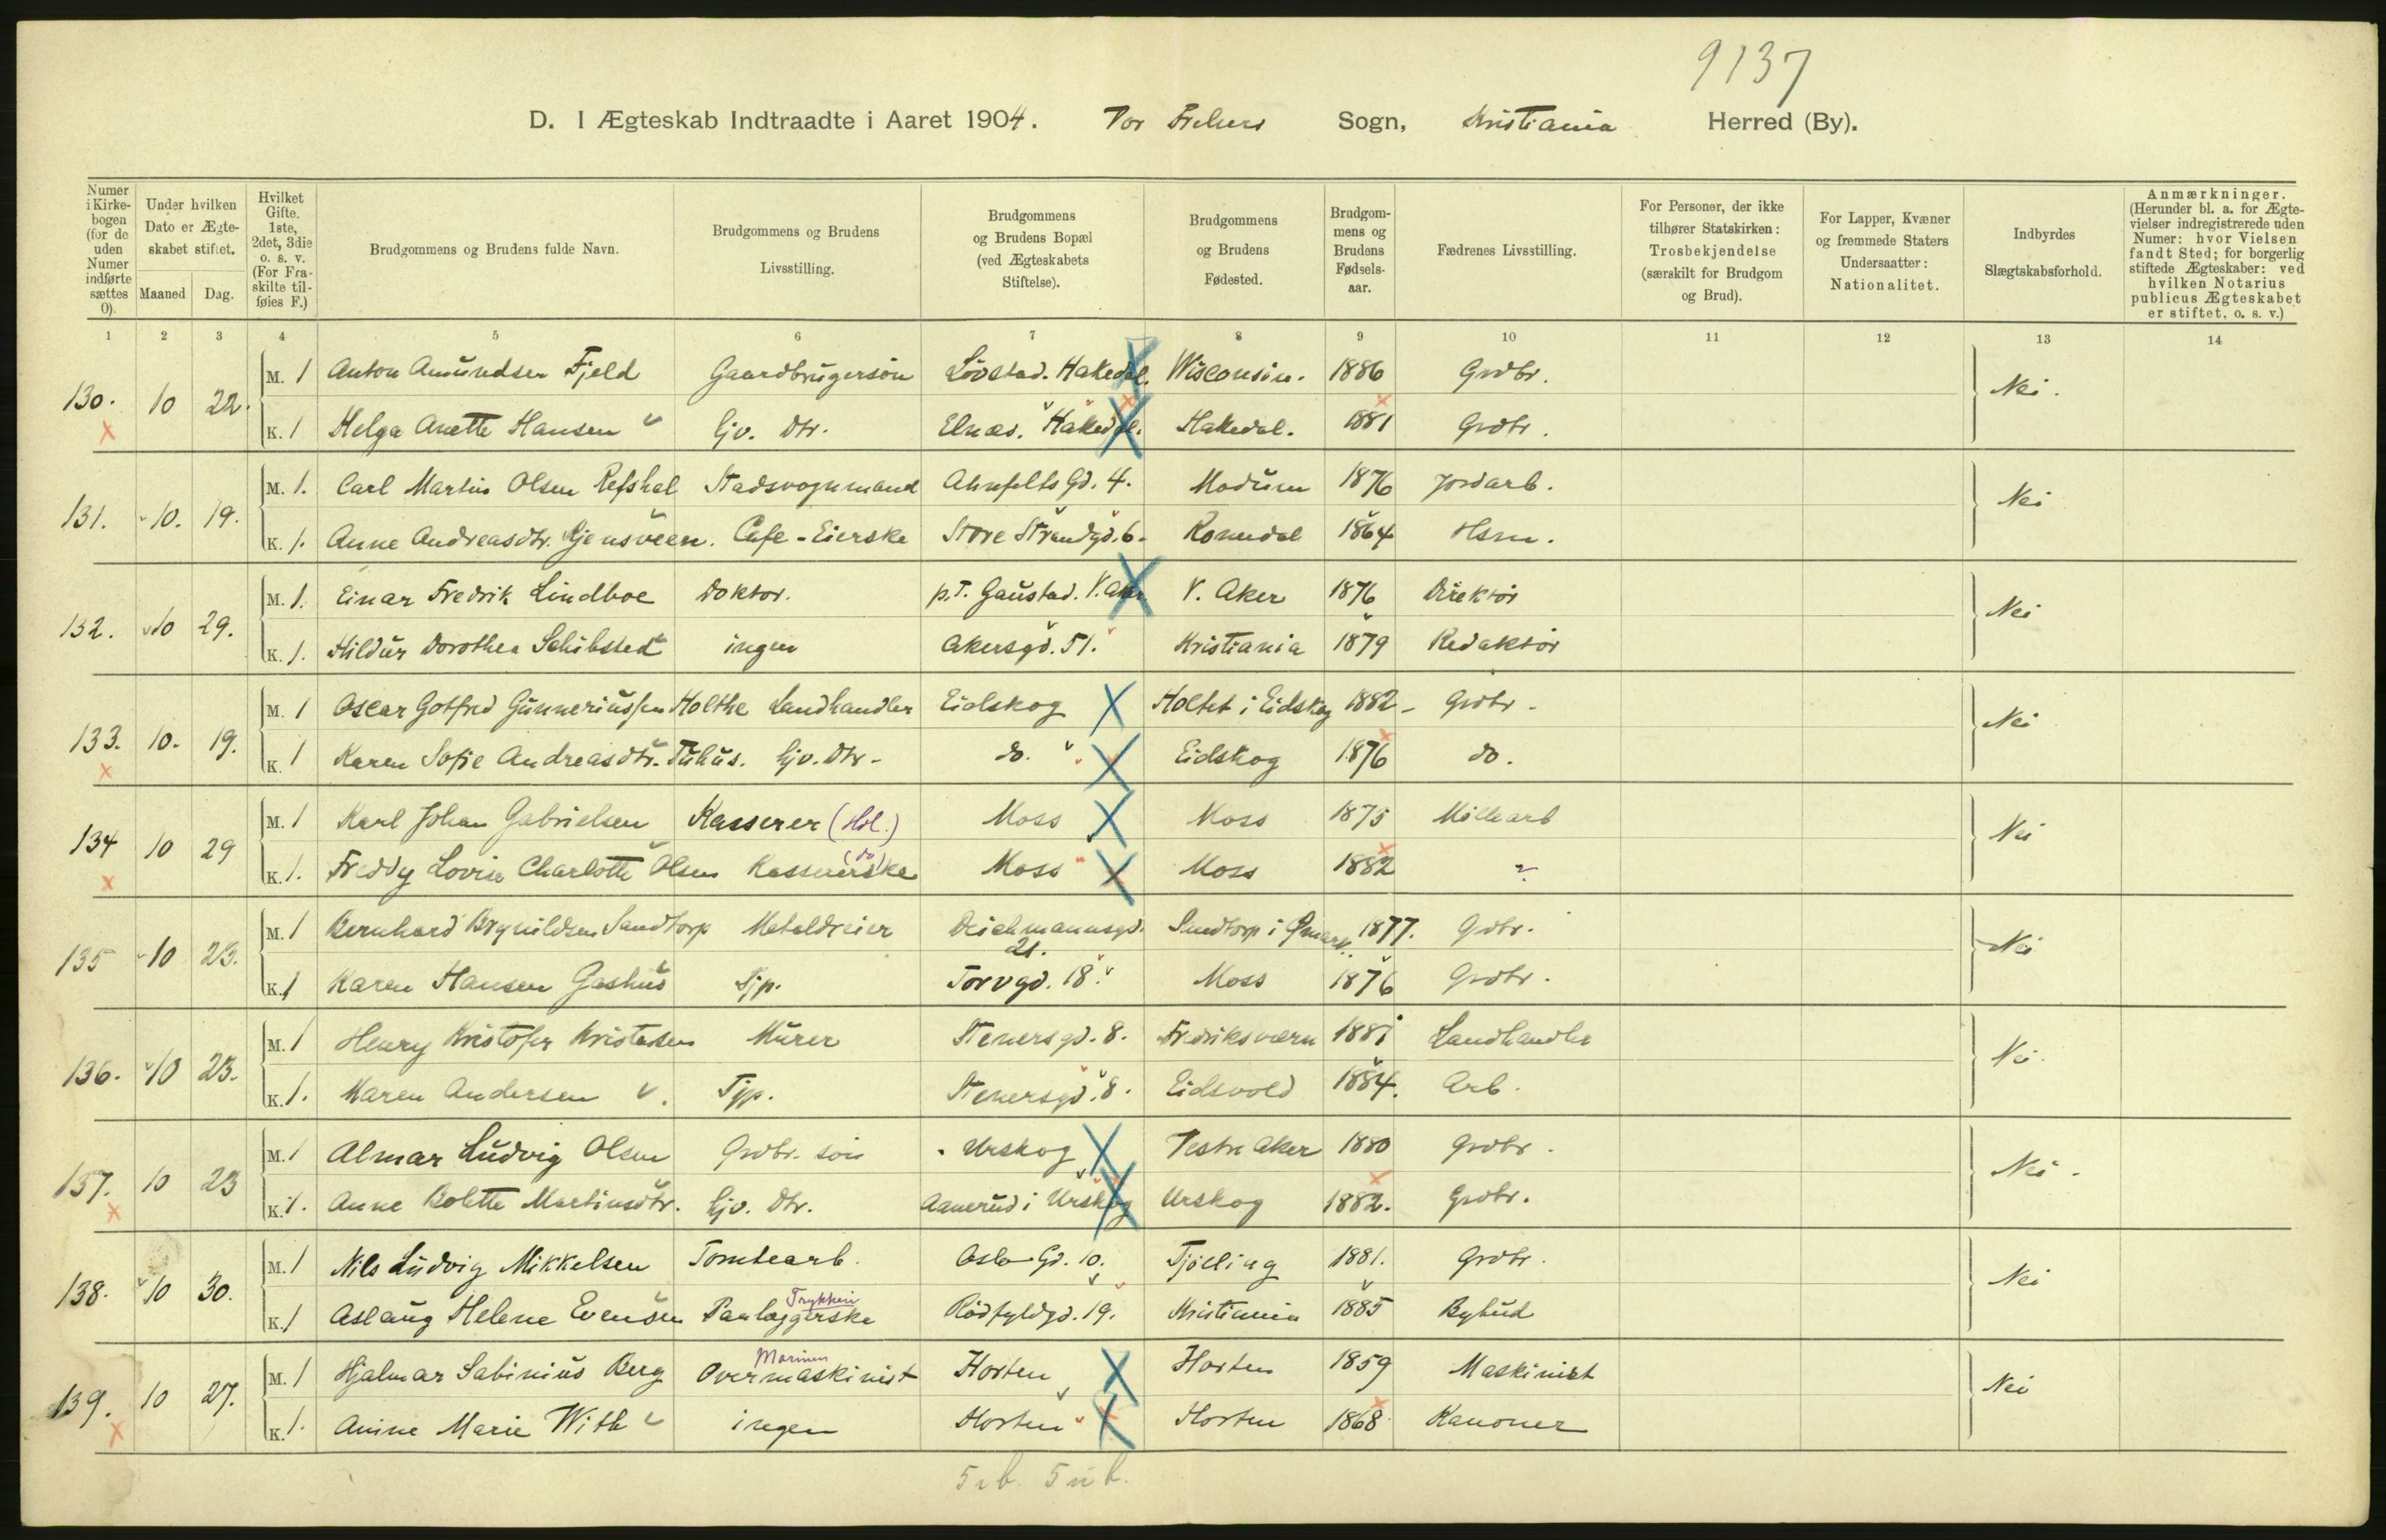 9137
D. I Ægteskab Indtraadte i Aaret 1904. Vor Frelsers Sogn, Kristiania Herred (By).
Numer i Kirkebogen (for de uden Numer indførte sættes 0).
Under hvilken Dato er Ægteskabet stiftet.
Maaned Dag.
Hvilket Gifte. 1ste, 2det, 3die o. s. v. (For Fraskilte tilføies F.)
Brudgommens og Brudens fulde Navn.
Brudgommens og Brudens Livsstilling.
Brudgommens og Brudens Bopæl (ved Ægteskabets Stiftelse).
Brudgommens og Brudens Fødested.
Brudgommens og Brudens Fødselsaar.
Fædrenes Livsstilling.
For Personer, der ikke tilhører Statskirken: Trosbekjendelse (særskilt for Brudgom og Brud).
For Lapper, Kvæner og fremmede Staters Undersaatter: Nationalitet.
Indbyrdes Slægtskabsforhold.
Anmærkninger. (Herunder bl. a. for Ægtevielser indregistrerede uden Numer: hvor Vielsen fandt Sted; for borgerlig stiftede Ægteskaber: ved hvilken Notarius publicus Ægteskabet er stiftet, o. s. v.)
1 2 3 4 5 6 7 8 9 10 11 12 13 14
130. 10 22. M. 1 Anton Amundsen Fjeld Gaardbrugersøn Løvstad. Hakedal. Wisconsin. 1886 Grdbr. Nei.
K. 1 Helga Anette Hansen hjv. Dtr. Elnæs. Hakedal. Hakedal. 1881 Grdbr.
131. 10. 19. M. 1. Carl Martin Olsen Refshal Stadsvognmand Ahnfelts Gd. 4. Modum 1876 Jordarb. Nei
K. 1. Anne Andreasdtr. Gjensveen. Cafe-Eierske Store Strandgd. 6. Romedal 1864 Hsm.
132. 10 29. M. 1. Einar Fredrik Lindboe Doktor. p.T. Gaustad. V. Aker V. Aker 1876 Direktør Nei
K. 1. Hildur Dorothea Schibsted ingen Akersgd. 51. Kristiania 1879 Redaktør
133. 10. 19. M. 1 Oscar Gotfred Gunneriussen Holthe Landhandler Eidskog Holtet i Eidskog 1882 - Grdbr. Nei
K. 1 Karen Sofie Andreasdtr. Tuhus. hjv. Dtr. do. Eidskog 1876 do.
134 10 29 M. 1 Karl Johan Gabrielsen Kasserer (Hdl.) Moss Moss 1875 Møllearb Nei
K. 1. Freddy Lovise Charlotte Olsen Kassererske (do) Moss Moss 1882 ?
135 10 23. M. 1 Bernhard Brynildsen Sandtorp Metaldreier Deichmannsgd. 21. Sandtorp i Ømark. 1877. Gdbr. Nei
K. 1 Karen Hansen Gashus Tjp. Torvgd. 18. Moss 1876 Grdbr.
136. 10 23. M. 1 Henry Kristofer Kristensen Murer Stenersgd. 8. Fredriksværn 1881 Landhandler Nei
K. 1. Maren Andersen Tjp. Stenersgd. 8. Eidsvold 1884. Arb.
137. 10 23 M. 1 Almar Ludvig Olsen Grdbr. søn Urskog Vestre Aker 1880 Grdbr. Nei.
K. 1. Anne Bolette Martinsdtr. hjv. Dtr. Aanerud i Urskog Urskog 1882. Grdbr.
138. 10 30. M. 1 Nils Ludvig Mikkelsen Tomtearb. Oslo Gd. 10. Tjølling 1881. Grdbr. Nei
K. 1 Aslaug Helene Evensen Paalæggerske Trykkeri Rødfyldgd. 19. Kristiania 1885 Bybud
139. 10 27. M. 1 Hjalmar Sabinius Berg Overmaskinist Marinen Horten Horten 1859 Maskinist Nei
K. 1. Anine Marie With ingen Horten Horten 1868 Kanoner